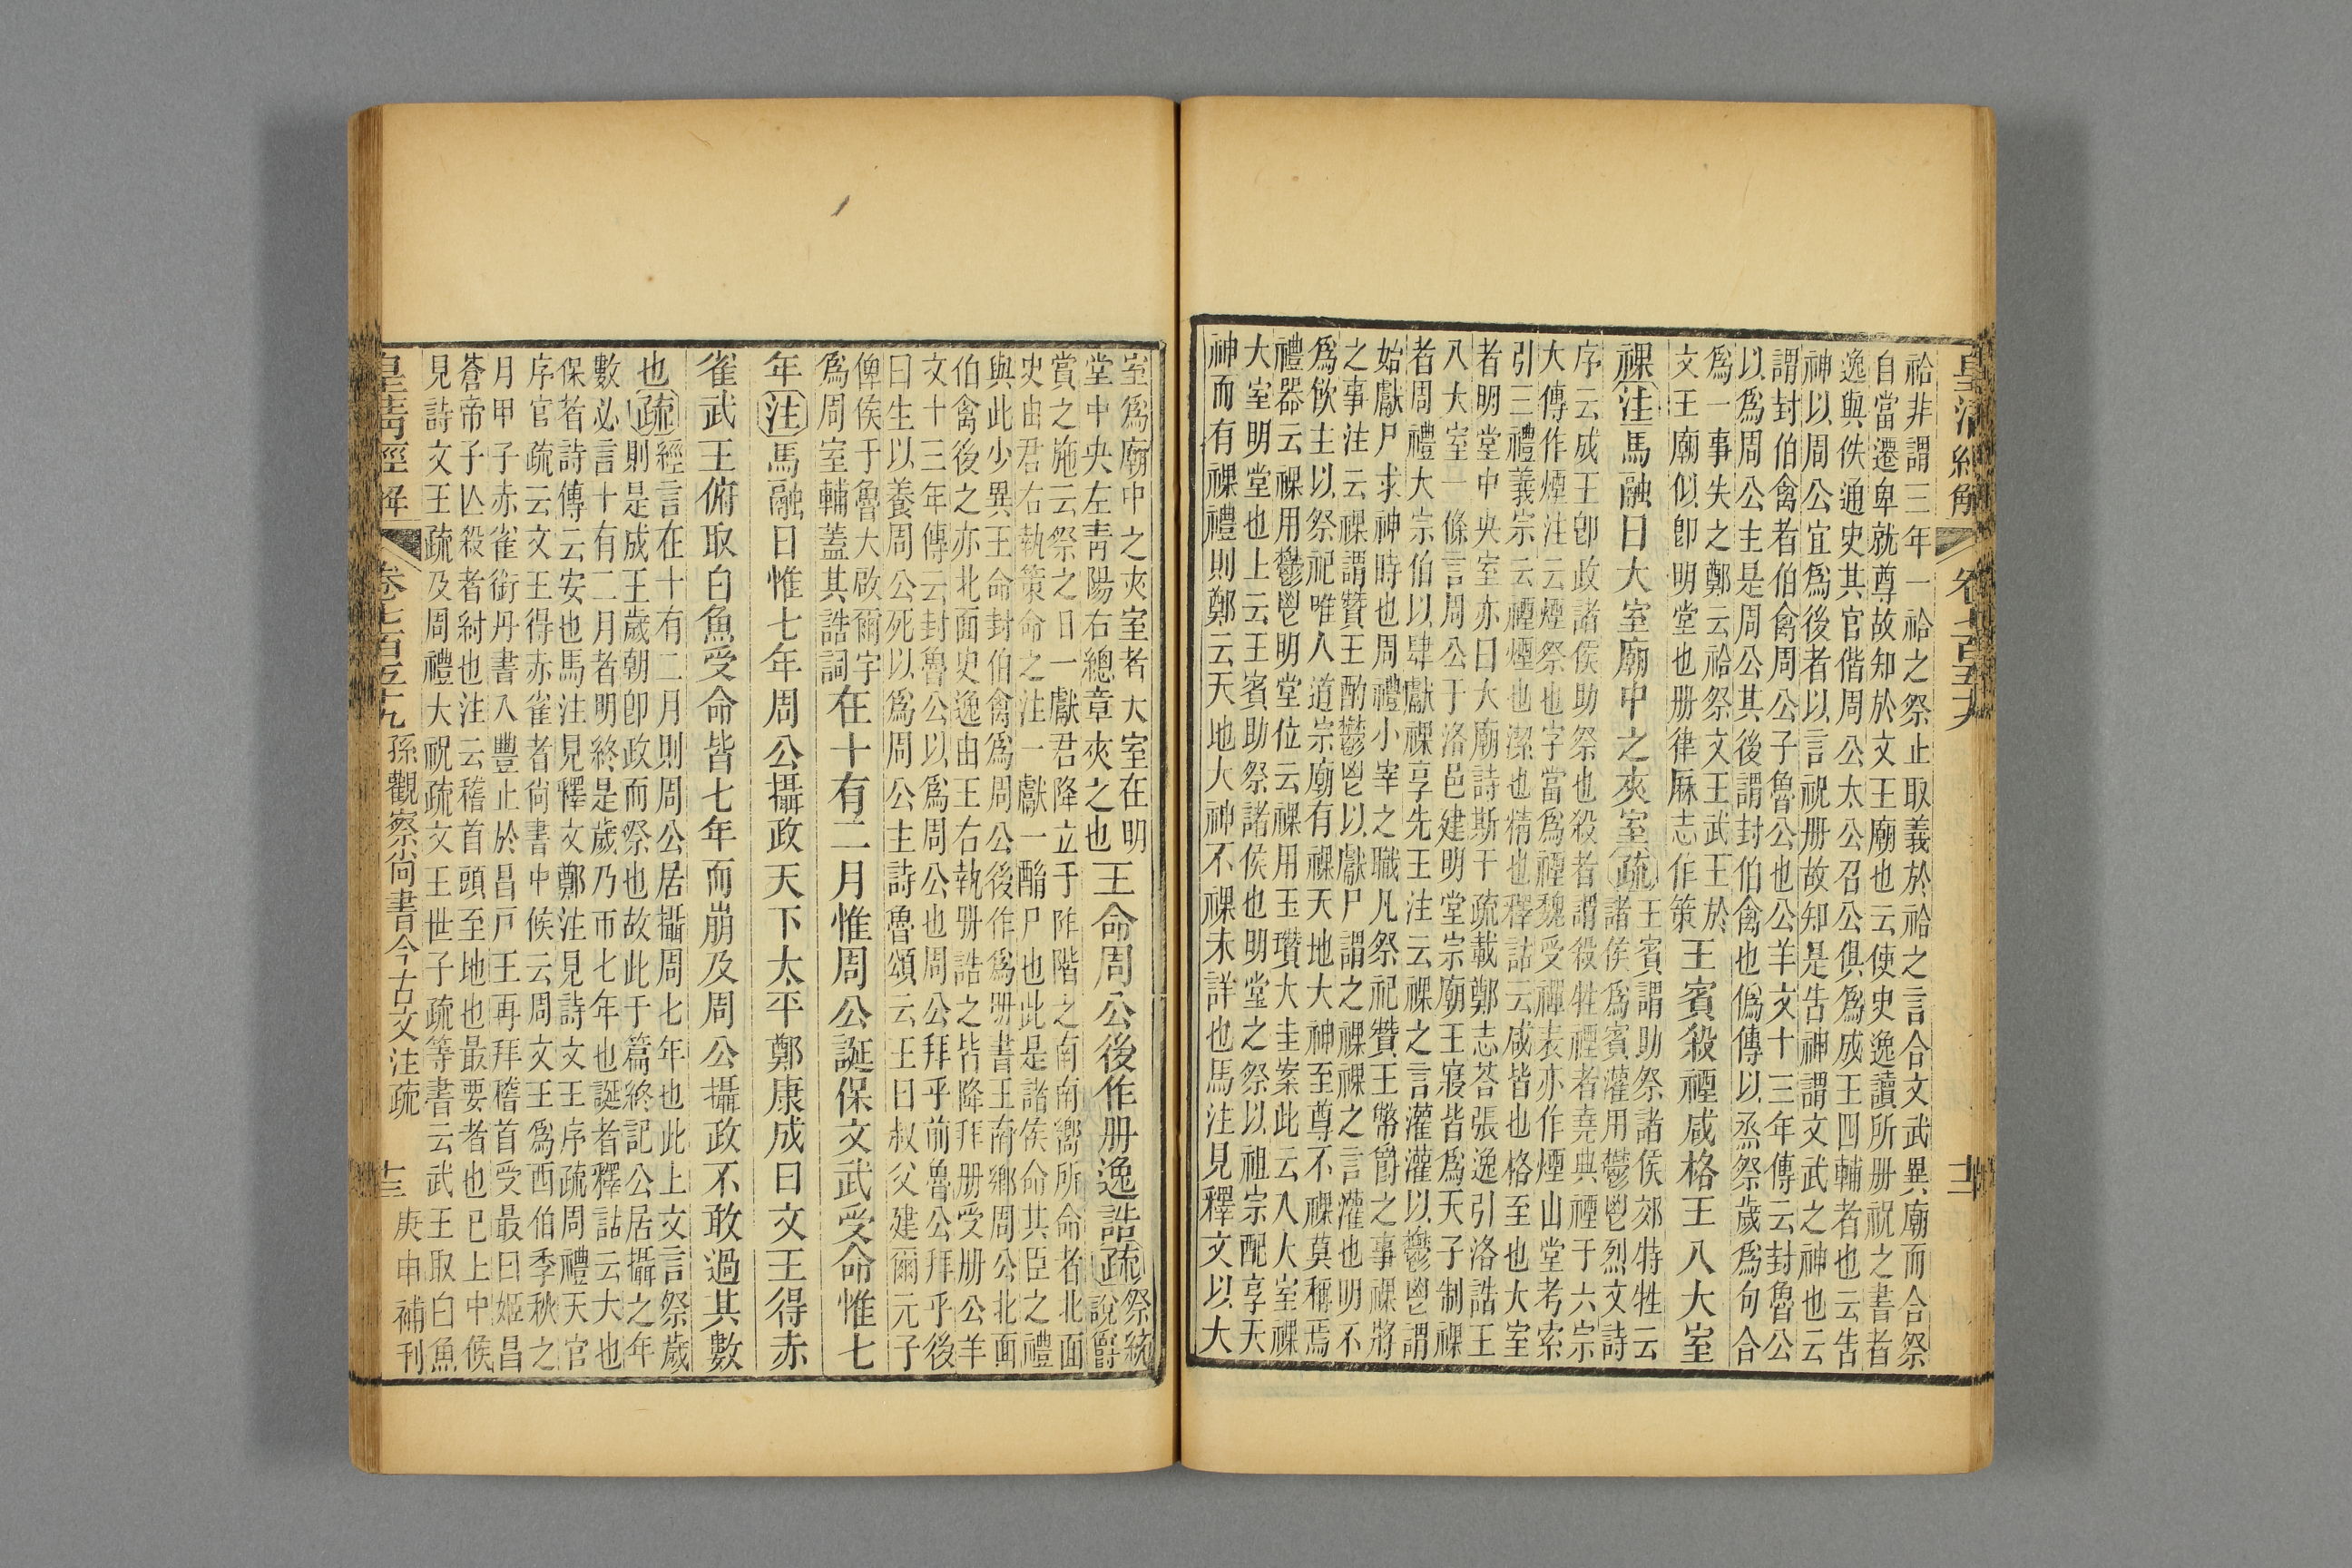 皇清經解 卷七百五十九 十二
祫非謂三年一祫之祭止取義於祫之言合文武異廟而合祭
自當遷卑就尊故知於文王廟也云使史逸讀所册祝之書者
逸與佚通史其官偕周公太公召公俱為成王四輔者也云告
神以周公宜爲後者以言祝册故知是告神謂文武之神也云
謂封伯禽者伯禽周公子魯公也公羊文十三年傳云封魯公
以爲周公主是周公其後謂封伯禽也僞傳以烝祭歲爲句合
爲一事失之鄭云祫祭文王武王於
文王廟似卽明堂也册律厤志作策
王賓殺禋咸格王入大室
祼注馬融曰大室廟中之夾室疏
王賓謂助祭諸侯郊特牲云
諸侯爲賓灌用鬱鬯烈文詩
序云成王卽政諸侯助祭也殺者謂殺牲禋者堯典禋于六宗
大傳作煙注云煙祭也字當爲禋魏受禪表亦作煙山堂考索
引三禮義宗云禋煙也潔也精也釋詁云咸皆也格至也大室
者明堂中央室亦曰大廟詩斯干疏載鄭志荅張逸引洛誥王
入大室一條言周公于洛邑建明堂宗廟王寢皆爲天子制祼
者周禮大宗伯以肆獻祼享先王注云祼之言灌灌以鬱鬯謂
始獻尸求神時也周禮小宰之職凡祭祀贊王幣爵之事祼將
之事注云祼謂贊王酌鬱鬯以獻尸謂之祼祼之言灌也明不
爲飲主以祭祀唯人道宗廟有祼天地大神至尊不祼莫稱焉
禮器云祼用鬱鬯明堂位云祼用玉瓚大圭案此云入大室祼
大室明堂也上云王賓助祭諸侯也明堂之祭以祖宗配享天
神而有祼禮則鄭云天地大神不祼未詳也馬注見釋文以大
室爲廟中之夾室者大室在明
堂中央左靑陽右總章夾之也
王命周公後作册逸誥疏
祭統
說爵
賞之施云祭之日一獻君降立于阼階之南南嚮所命者北面
史由君右執策命之注一獻一酳尸也此是諸侯命其臣之禮
與此少異王命封伯禽爲周公後作爲册書王南鄉周公北面
伯禽後之亦北面史逸由王右執册誥之皆降拜册受册公羊
文十三年傳云封魯公以爲周公也周公拜乎前魯公拜乎後
曰生以養周公死以爲周公主詩魯頌云王曰叔父建爾元子
俾侯于魯大啟爾宇
爲周室輔蓋其誥詞
在十有二月惟周公誕保文武受命惟七
年注馬融曰惟七年周公攝政天下太平鄭康成曰文王得赤
雀武王俯取白魚受命皆七年而崩及周公攝政不敢過其數
也疏
經言在十有二月則周公居攝周七年也此上文言祭歲
則是成王歲朝卽政而祭也故此于篇終記公居攝之年
數必言十有二月者明終是歲乃帀七年也誕者釋詁云大也
保者詩傳云安也馬注見釋文鄭注見詩文王序疏周禮天官
序官疏云文王得赤雀者尚書中候云周文王爲西伯季秋之
月甲子赤雀銜丹書入豐止於昌戸王再拜稽首受最曰姬昌
蒼帝子亾殺者紂也注云稽首頭至地也最要者也已上中候
見詩文王疏及周禮大祝疏文王世子疏等書云武王取白魚
皇淸經解 卷七百五十九 孫觀察尚書今古文注疏 十三 庚申補刊